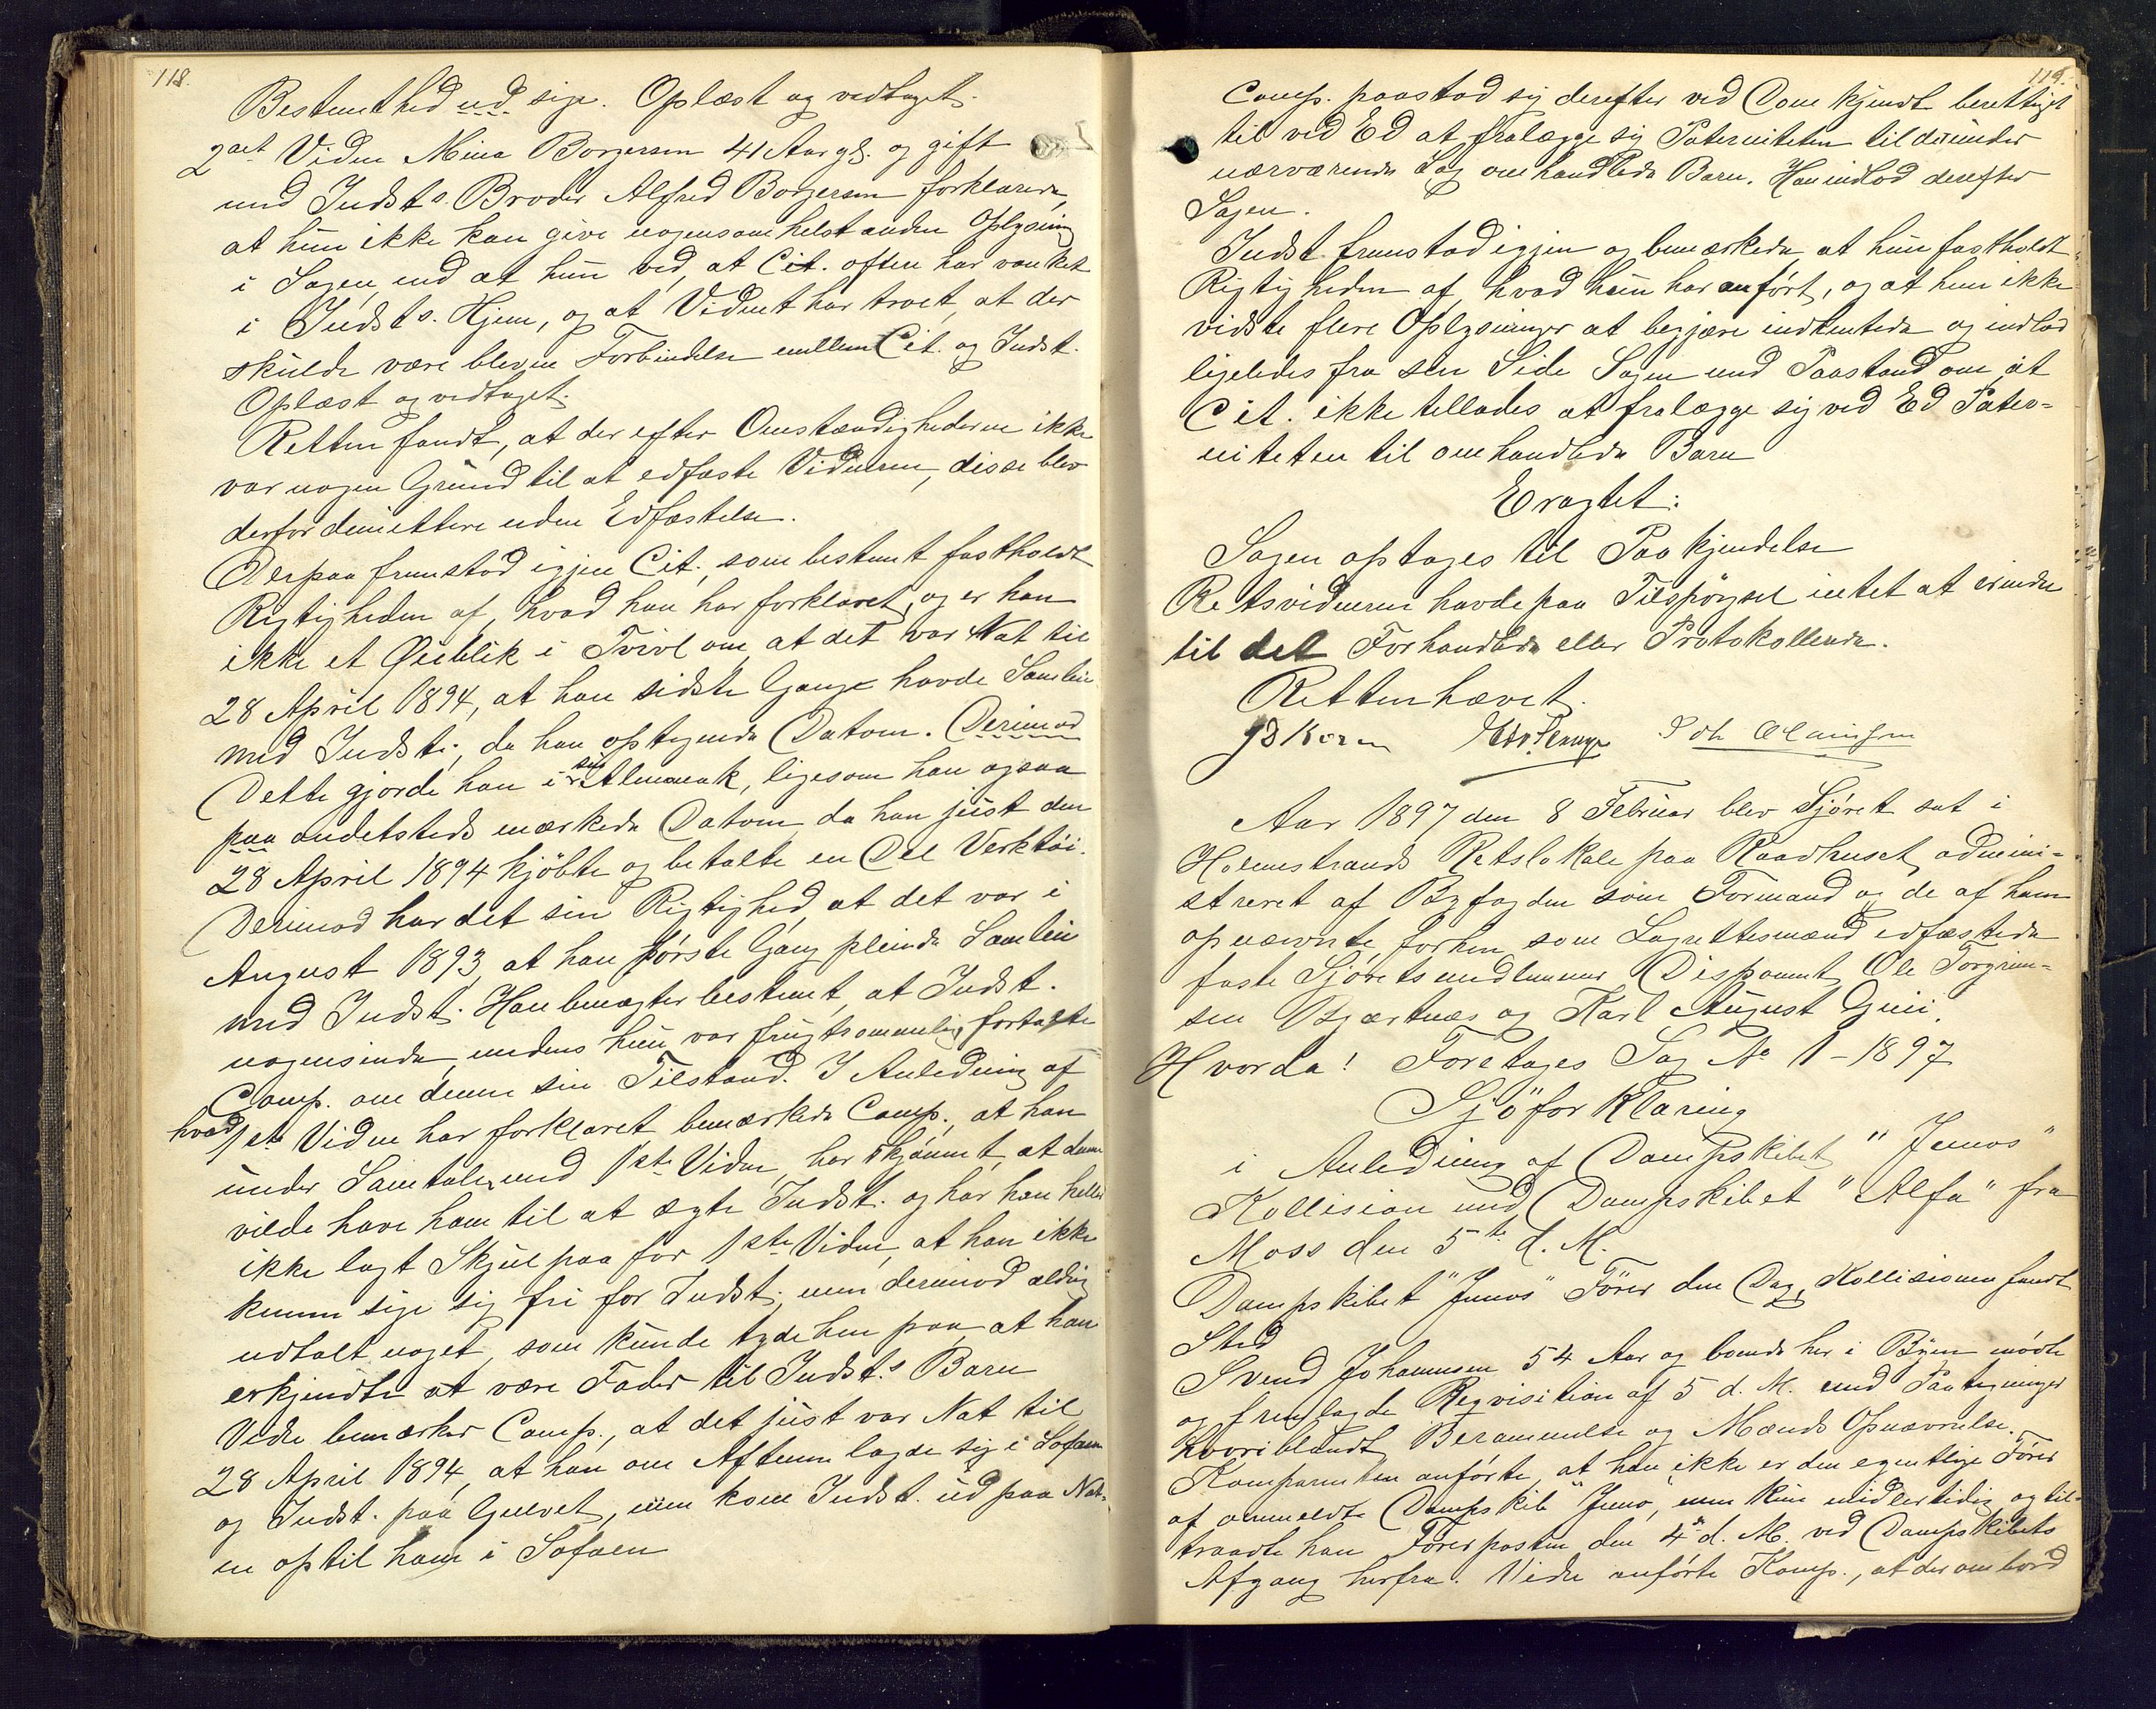 118.
Bestemthed ud sige. Oplæst og vedtaget.
2det Vidne Mina Borgersen 41 Aar gl. og gift
med Indsts. Broder Alfred Borgersen forklarede,
at hun ikke kan give nogensomhelst anden Oplysning
i Sagen, end at hun ved, at Cit. ofte har vanket
i Indsts. Hjem, og at Vidnet har troet, at der
skulde være bleven Forbindelse mellem Cit. og Indst.
Oplæst og vedtaget.
Retten fandt, at der efter Omstændighederne ikke
var nogen Grund til at edfæste Vidnerne, disse blev
derfor demitterede uden Edfæstelse.
Derpaa fremstod igjen Cit., som bestemt fastholdt
Rigtigheden af, hvad han har forklaret, og er han
ikke et Øieblik i Tvivl om, at det var Nat til
28 April 1894, at han sidste Gang havde Samleie
med Indst., da han optegnede Datoen. Derimod
Dette gjorde han i sin Almanak, ligesom han ogsaa
paa andetsteds mærkede Datoen, da han just den
28 April 1894 kjöbte og betalte en Del Verktöi.
Derimod har det sin Rigtighed, at det var i
August 1893, at han förste Gang pleiede Samleie
med Indst. Han benægter bestemt, at Indst.
nogensinde, medens hun var frugtsommelig fortalte
Comp. om denne sin Tilstand. I Anledning af
hvad 1ste Vidne har forklaret bemærkede Comp., at han
under Samtaler med 1ste Vidne, har skjönnet, at denne
vilde have ham til at ægte Indst. og har han heller
ikke lagt Skjul paa for 1ste Vidne, at han ikke
kunne sige sig fri for Indst., men derimod aldrig
udtalt noget, som kunde tyde hen paa, at han
erkjendte at være Fader til Indsts Barn
Videre bemærker Comp., at det just var Nat til
28 April 1894, at han om Aftenen lagde sig i Sofaen
og Indst. paa Gulvet, men kom Indst. ud paa Nat-
en op til ham i Sofaen
119.
Comp. paastod sig derefter ved Dom kjendt berettiget
til ved Ed at fralægge sig Paterniteten til det under
nærværende Sag omhandlede Barn. Han indlod derefter
Sagen.
Indst. fremstod igjen og bemærkede at hun fastholdt
Rigtigheden af, hvad hun har anfört, og at hun ikke
vidste flere Oplysninger at begjære indhentede og indlod
ligeledes fra sin Side Sagen med Paastand om, at
Cit. ikke tillades at fralægge sig ved Ed Pater-
niteten til omhandlede Barn
Eragtet:
Sagen optages til Paakjendelse
Retsvidnerne havde paa Tilspörgsel intet at erindre
til det Forhandlede eller Protokollerede.
Retten hævet.
Aar 1897 den 8 Februar blev Sjöret sat i
Holmestrands Retslokale paa Raadhuset, admini-
streret af Byfogden som Formand og de af ham
opnævnte, forhen som Lagrettesmænd edfæstede
faste Sjöretsmedlemmer Disponent Ole Torgrim-
sen Bjærknæs og Karl August Gjui.
Hvorda! Foretages Sag No 1-1897
Sjöforklaring
i Anledning af Dampskibet "Junos"
Kollision med Dampskibet "Alfa" fra
Moss den 5te d. M.
Dampskibet "Junos" Förer den Dag, Kollisionen fandt
Sted
Svend Johannesen 54 Aar og boende her i Byen mödte
og fremlagde Reqvisition af 5 d. M. med Paategninger
hvoriblandt Berammelse og Mænds Opnævnelse.
Komparenten anförte, at han ikke er den egentlige Förer
af anmeldte Dampskib "Juno", men kun midlertidig og til-
traadte han Förerposten den 4de d. M. ved Dampskibets
Afgang herfra. Videre anförte Komp., at der ombord